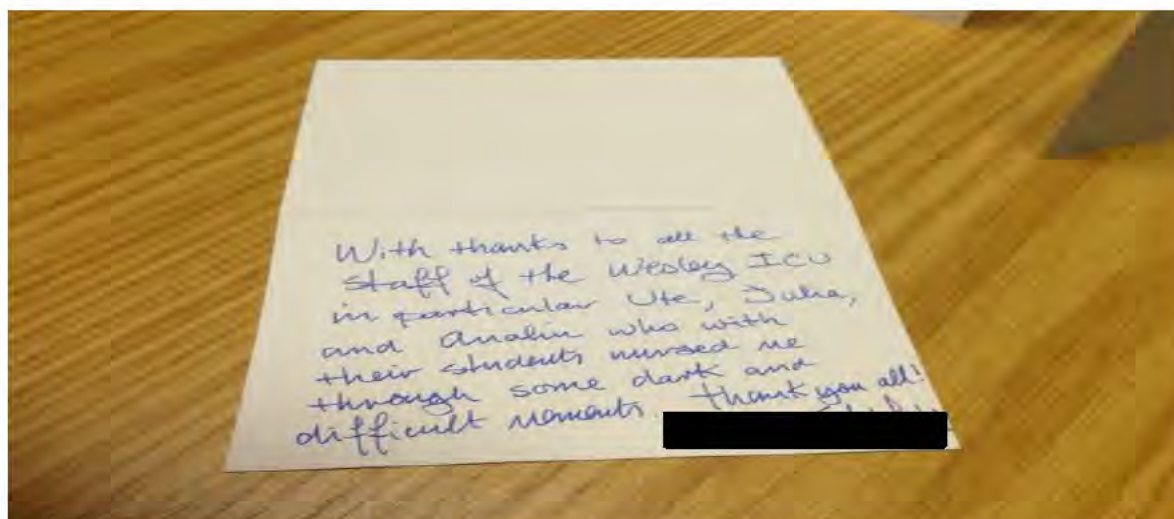 With thanks to all the
staff of the Wesley ICU
in particular Ute, Julia,
and who with
their students nursed me
through some dark and
difficult moments. Thank you all!